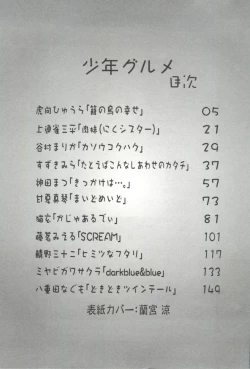 少年グルメ
目次
虎向ひゅうら「籠の鳥の幸せ」 05
上連雀三平「肉妹(にくシスター)」 21
谷村まりか「カソウコウハク」 29
すずきみら「たとえばこんなしあわせのカタチ」 37
神田まつ「きっかけは…。」 57
甘夏真琴「まいどめいど」 73
猫玄「かじゅあるでぃ」 81
藤茗みえる「SCREAM」 101
饅野三十二「ヒミツなフタリ」 117
ミヤビカワサクラ「darkblue&blue」 133
八重田なぐも「ときどきツインテール」 149
表紙カバー:蘭宮 涼